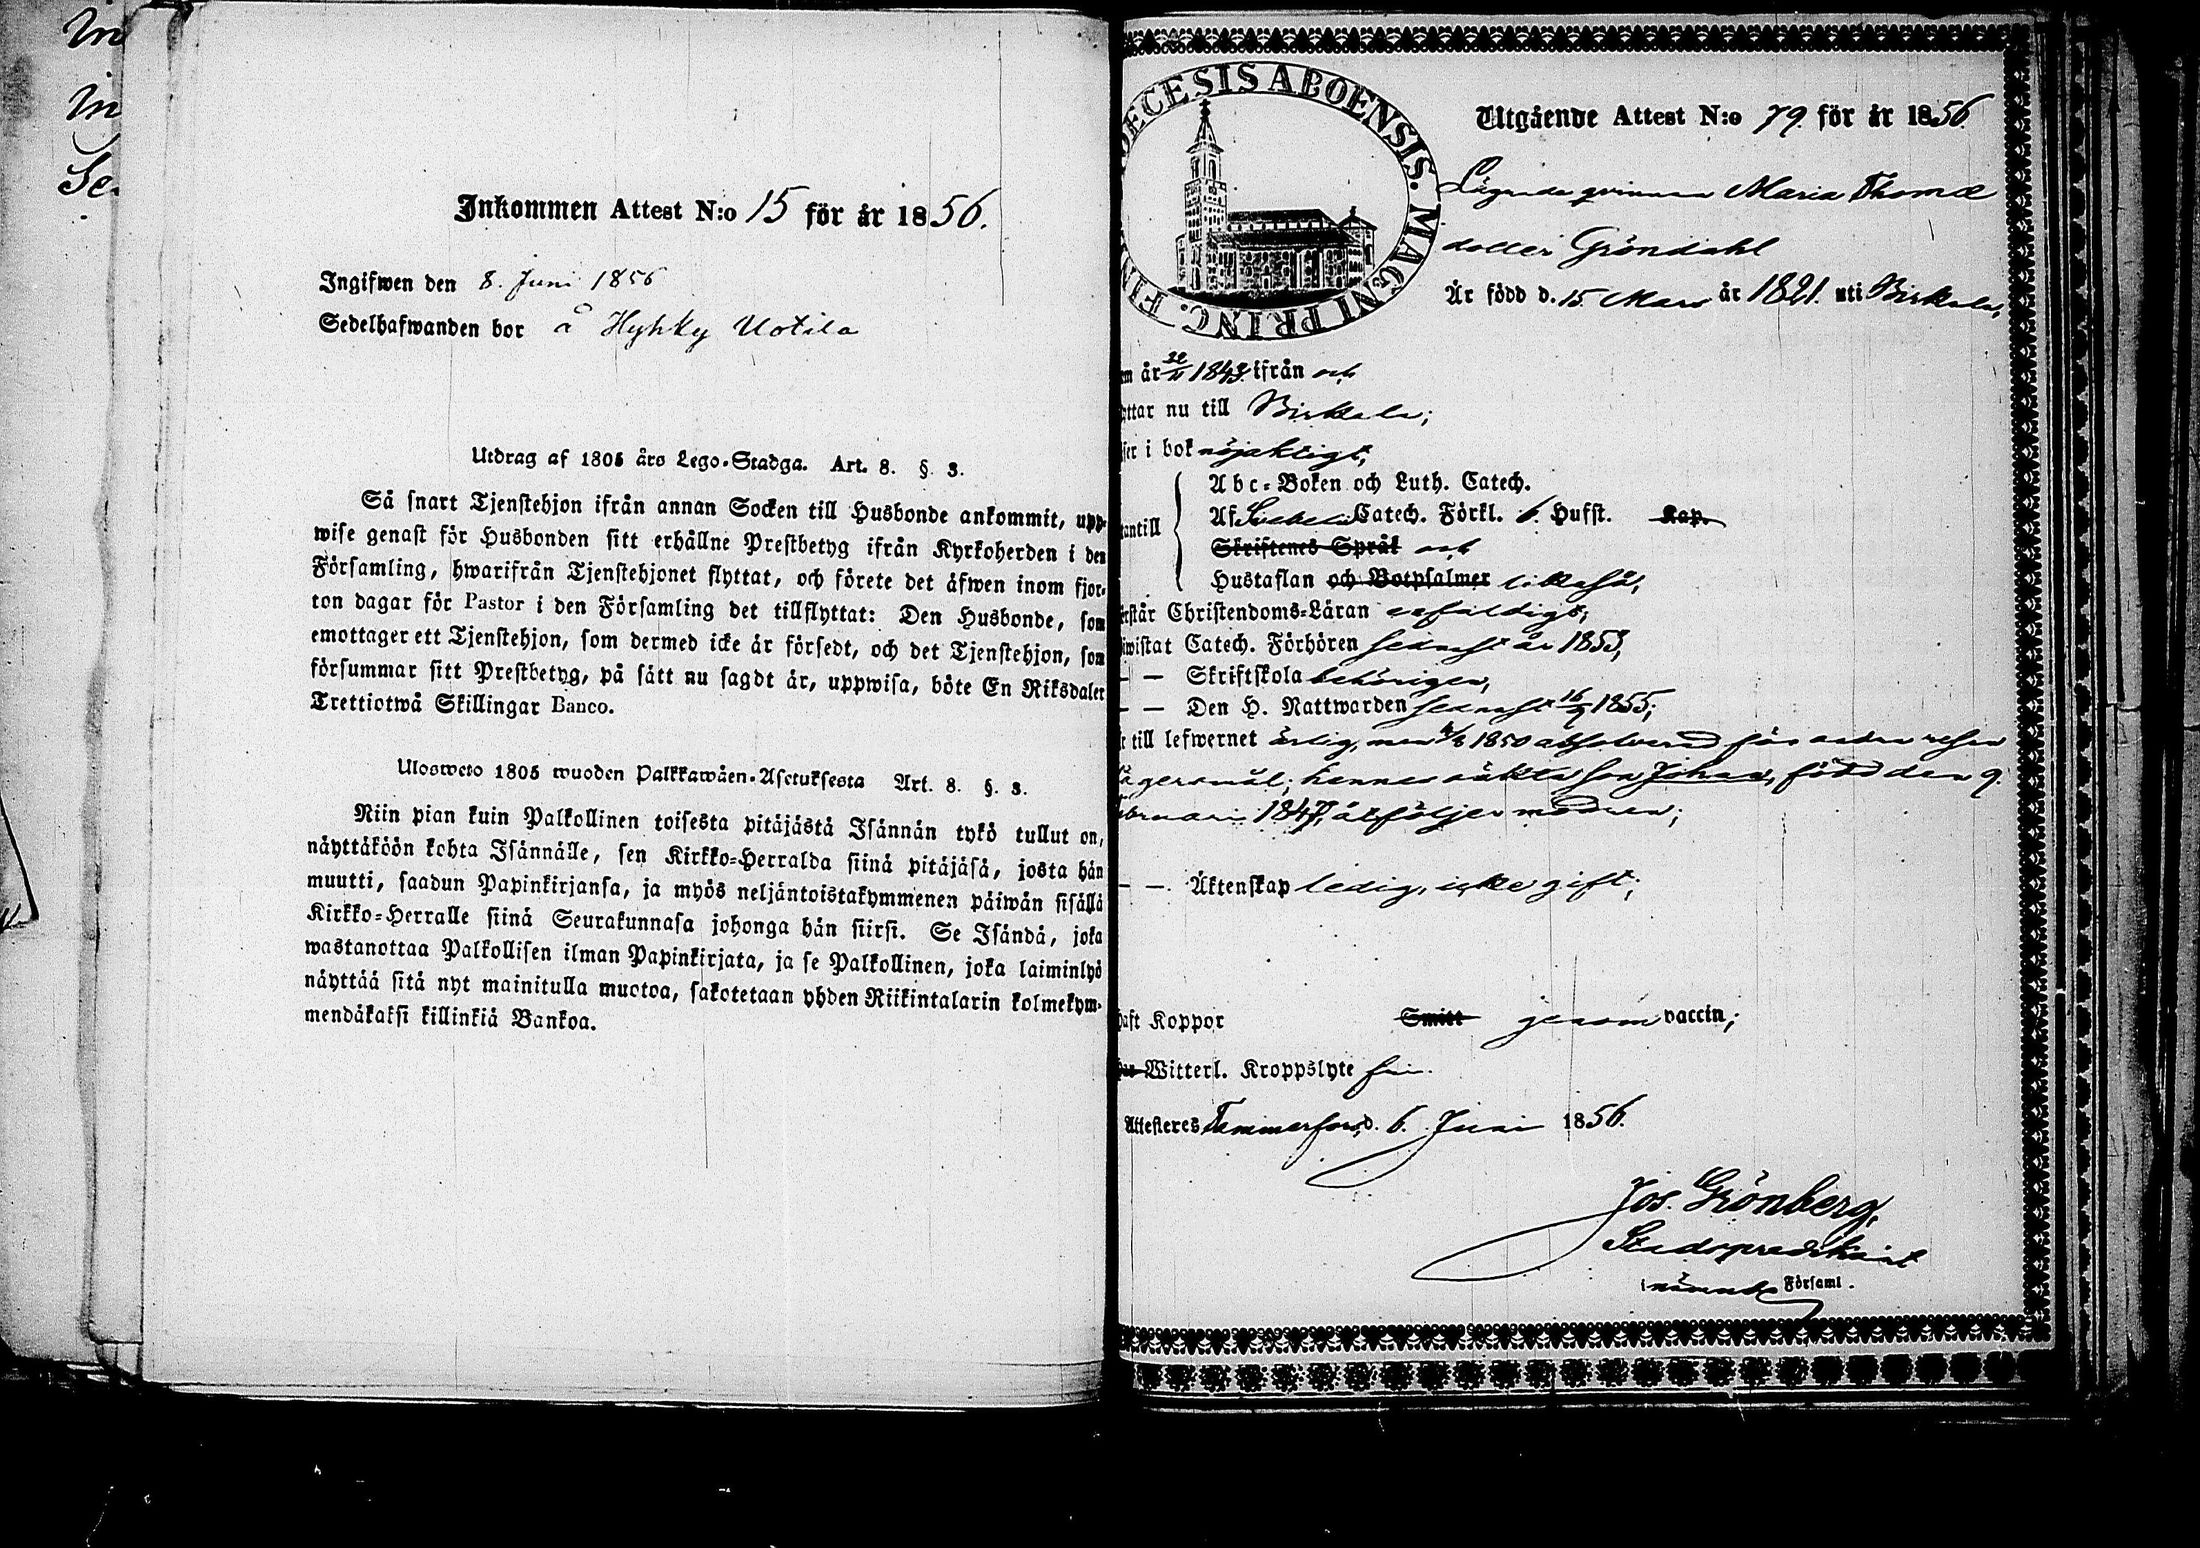 Inkommen Attest N:o 15 för år 1856.
Ingifwen den 8. Juni 1856
Sedelhafwanden bor å Hyhky Uotila
Utdrag af 1805 års Lego-Stadga. Art. 8. §. 3.
Så snart Tjenstehjon ifrån annan Socken till Husbonde ankommit, upp-
wise genast för Husbonden sitt erhållne Prestbetyg ifrån Kyrkoherden i den
Församling, hwarifrån Tjenstehjonet flyttat, och förete det äfwen inom fjor-
ton dagar för Pastor i den Församling det tillflyttat: Den Husbonde, som
emottager ett Tjenstehjon, som dermed icke är försedt, och det Tjenstehjon, som
försummar sitt Prestbetyg, på sätt nu sagdt är, uppwisa, böte En Riksdaler
Trettiotwå Skillingar Banco.
Ulosweto 1805 wuoden Palkkawäen-Asetuksesta Art. 8. §. 3.
Niin pian kuin Palkollinen toisesta pitäjästä Isännän tykö tullut on,
näyttäköön kohta Isännälle, sen Kirkko-Herralda siinä pitäjäsä, josta hän
muutti, saadun Papinkirjansa, ja myös neljäntoistakymmenen päiwän sisällä
Kirkko-Herralle siinä Seurakunnasa johonga hän siirsi. Se Isändä, joka
wastanottaa Palkollisen ilman Papinkirjata, ja se Palkollinen, joka laiminlyö
näyttää sitä nyt mainitulla muotoa, sakotetaan yhden Riikintalarin kolmekym-
mendäkaksi killinkiä Bankoa.
DECESIS ABOENSIS. MAGNI PRINC. FIN
Utgående Attest N:o 79. för år 1856.
Lägrade qvinnan Maria Thomæ
dotter Gröndahl
Är född d. 15 Mars år 1821. uti Birkala,
m år 22/11 1843. ifrån och
ttar nu till Birkala;
ser i bok nöjaktigt,
Abc-Boken och Luth. Catech.
Af Svebelii Catech. Förkl. 6. Hufst. Kap.
antill
Skriftenes Språk och
Hustaflan och Botpsalmer likaså,
rstår Christendoms-Läran enfaldigt;
wistat Catech. Förhören sednast år 1853,
– – Skriftskola behörigen,
– – Den H. Nattwarden sednast 16/9 1855;
r till lefwernet ärlig, men 1850 absolverad för andra resan
lägersmål; hennes oäkta son Johan, född den 9.
ebruari 1847, åtföljer modren;
– – Äktenskap ledig, icke gift;
haft Koppor Smitt genom vaccin;
Witterl. Kroppslyte fri.
Attesteres Tammerfors, d. 6. Juni 1856.
Jos. Grönberg,
Stadspredikant
i nämnde Församl.